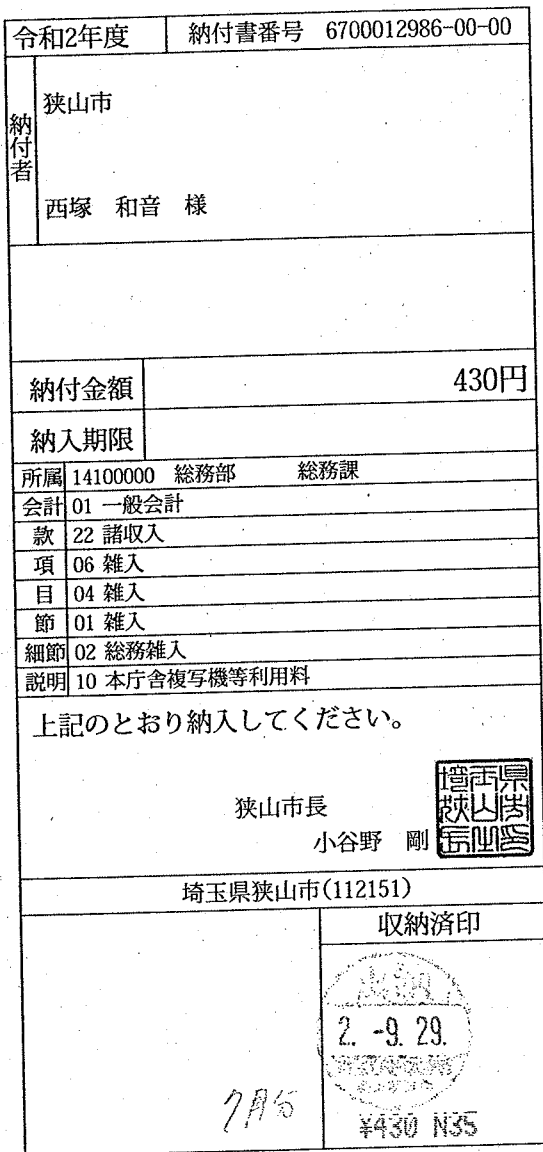 令和2年度 納付書番号 6700012986-00-00
納付者
狭山市
西塚 和音 様
納付金額 430円
納入期限
所属 14100000 総務部 総務課
会計 01 一般会計
款 22 諸収入
項 06 雑入
目 04 雑入
節 01 雑入
細節 02 総務雑入
説明 10 本庁舎複写機等利用料
上記のとおり納入してください。
狭山市長
小谷野 剛
埼玉県狭山市(112151)
収納済印
出納
2. -9. 29.
7月分
¥430 N35